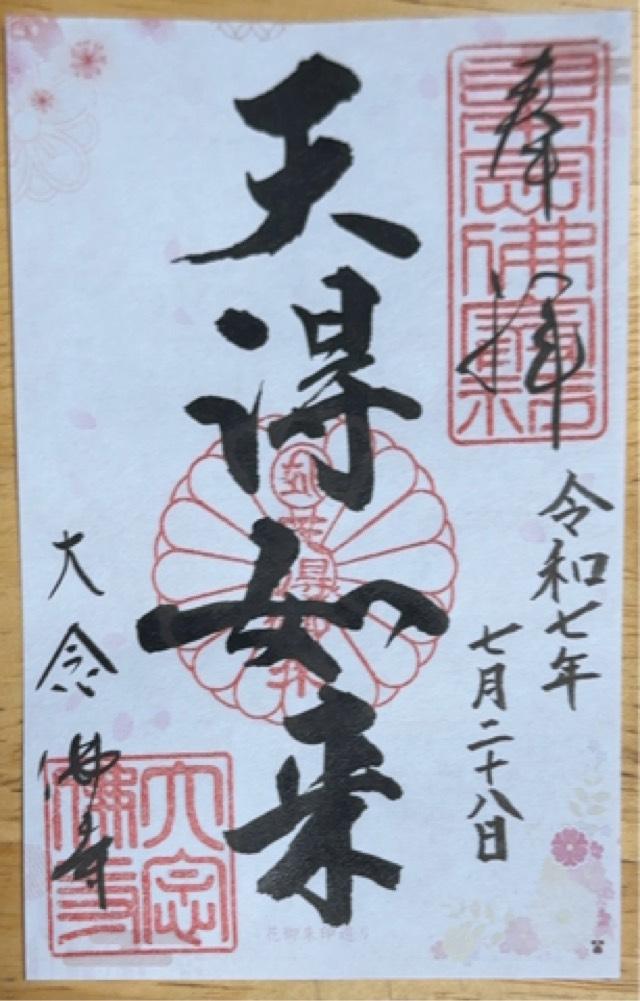 奉拝
令和七年
七月二十八日
天得如来
大念佛寺
大念
佛寺
花御朱印巡り